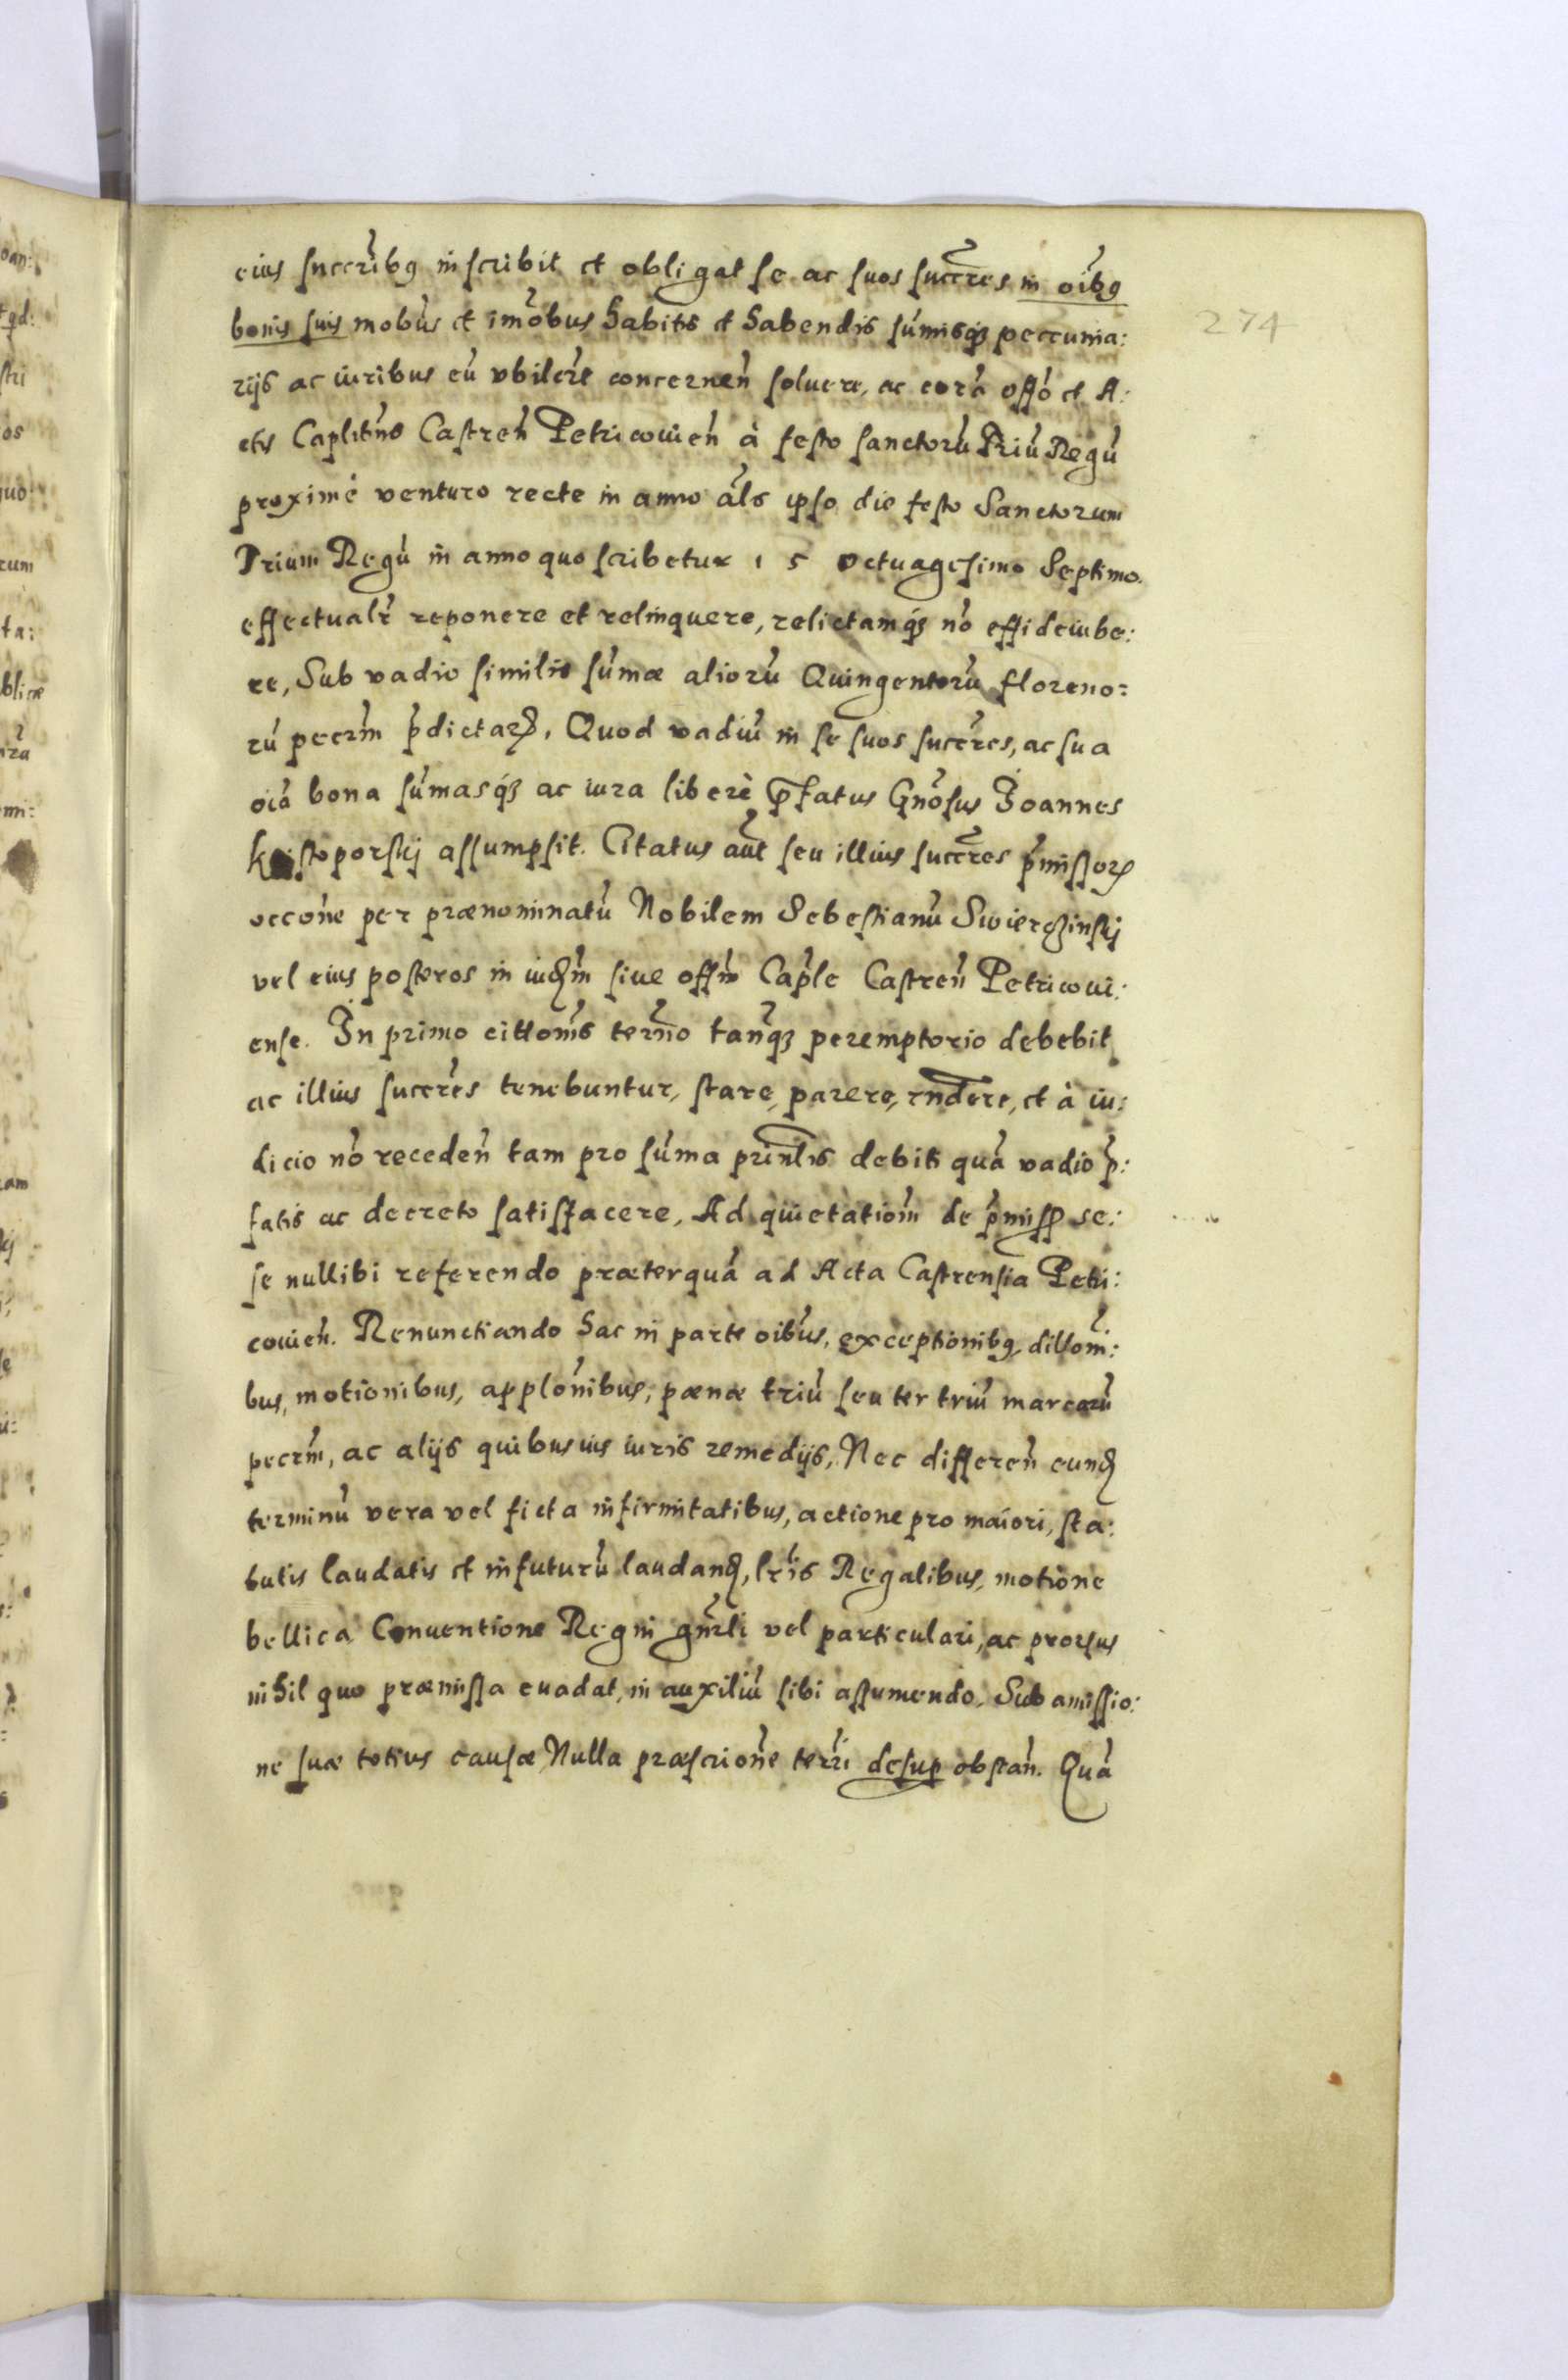 eius succrĩbq inscribit et obligat se ac suos succres̃ in oĩbq
bonis suis mobũs et imõbus habitis et habendis sũmisqȝ peccunia:
274
rijs ac iuribus eũ vbilcr̃t concerneñ soluere, ac corã offõ et A:
ctis Caplitñs Castreñ Petricouieñ à festo sanctorũ Triũ Regũ
proximè venturo recte in anno al̃s ipso die festo Sanctorum
Trium Regũ in anno quo scribetur 1 5 octuagesimo Septimo.
effectualr̃ reponere et relinquere, relictamqȝ nõ effideiube:
re, Sub vadio similis sũmæ aliorũ Quingentorũ floreno:
rũ pecrm̃ p̃dictarꝝ, Quod vadiũ in se suos succr̃es, ac sua
oiã bona sũmasqȝ ac iura liberè p̃fatus Gnõsus Joannes
Kristoporskij assumpsit. Citatus aũt seu illius succr̃es p̃missorꝝ
occõne per prænominatũ Nobilem Sebestianũ Swierczinskij
vel eius posteros in iudm̃ siue offm̃ Cap̃le Castreñ Petricoui:
ense. In primo cittoñis terño tanq̃ȝ peremptorio debebit
ac illius succr̃es tenebuntur, stare, parere, rñdere, et à iu:
dicio nõ recedeñ tam pro sũma prinl̃is debiti quã vadio p̃:
fatis ac decreto satisfacere, Ad quietatiom̃ de p̃miss se:
se nullibi referendo præterquã ad Acta Castrensia Petri:
couieñ. Renunctiando hac in parte oibũs, exceptionibq, dillom̃:
bus, motionibus, applõnibus, pænæ triũ seu ter triũ marcarũ
pecrm̃, ac alijs quibusuis iuris remedijs, Nec differeñ eund
terminũ vera vel ficta infirmitatibus, actione pro maiori, sta:
tutis laudatis et infuturũ laudand, lr̃is Regalibus, motione
bellica Conuentione Regni gnr̃li vel particulari, ac prorsus
nihil quo præmissa euadat, in auxiliũ sibi assumendo, Sub amissio:
ne suæ totius causæ, Nulla præscriõne terrĩ desup obstañ. Quã